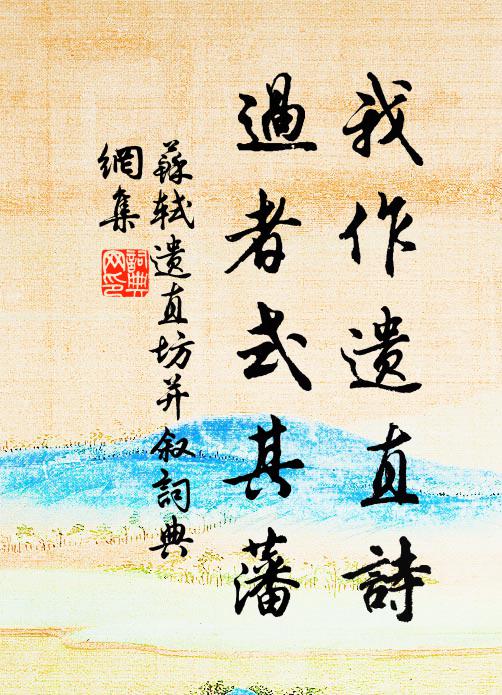 我作遗直詩
過者式其藩
蘇軾遗直坊并叙詞典
網集
詞典
网印